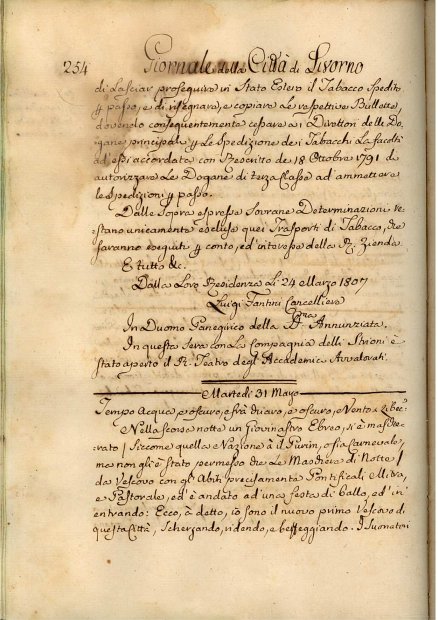 254 Giornale della Città di Livorno
di lasciar proseguire in Stato Estero il Tabacco spedito
p passo, e di risegnare, e copiare le respettive Bullette,
dovendo conseguentemente cessare ai Direttori delle Do-
gane principali p le Spedizione dei Tabacchi la facoltà
ad essi accordata con Rescritto de 18 Ottobre 1791 di
autorizzare le Dogane di terza Classe ad ammettere
le Spedizioni p passo.
Dalle sopra espresse Sovrane Determinazioni re-
stano unicamente escluse quei Trasporti di Tabacco, che
saranno eseguiti p conto, ed interesse della R. Zienda
E tutto &c.
Dalla Loro Residenza Li 24 Marzo 1807
Luigi Fantini Cancelliere
In Duomo Panegirico della SS. Annunziata.
In questa sera con la Compagnia delli Strioni è
stato aperto il R. Teatro degl'Accademici Avvalorati.
Martedi 31 Marzo
Tempo Acqua e oscuro, e frà chiaro, e oscuro, e Vento a
Nella scorsa notte un Giovinastro Ebreo, si è masche-
rato / siccome quella Nazione à il Purim, osia Carnevale,
ma non gli è stato permesso che le Maschere di Notte /
da Vescovo con gl'Abiti precisamente Pontificali Mitra,
e Pastorale, ed è andato ad una festa di ballo, ed in
entrando: Ecco, à detto, io sono il nuovo primo Vescovo di
questa Città, scherzando, ridendo, e beffeggiando. I Suonatori